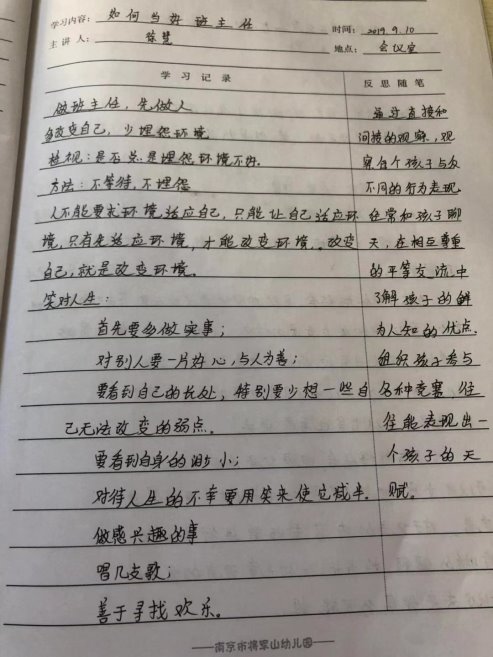 学习内容：如何当好班主任
时间：2019.9.10
主讲人：
地点：会议室
学习记录
做班主任，先做人
多改变自己，少埋怨环境
検视：是否总是埋怨环境不好.
方法：不等待，不埋怨
人不能要求环境适应自己，只能让自己适应环
境，只有先适应环境，才能改变环境。改变
自己，就是改变环境。
笑对人生：
首先要多做实事；
对别人要一片好心，与人为善；
要看到自己的长处，特别要少想一些自
己无法改变的弱点。
要看到自身的渺小；
对待人生的不幸要用笑来使它减半.
做感兴趣的事
唱几支歌；
善于寻找欢乐。
反思随笔
通过直接和
间接的观察，观
察每个孩子与众
不同的行为表现.
经常和孩子聊
天，在相互尊重
的平等交流中
了解孩子的鲜
为人知的优点.
组织孩子参与
各种竞赛，往
往能表现出一
个孩子的天
赋。
南京市将军山幼儿园